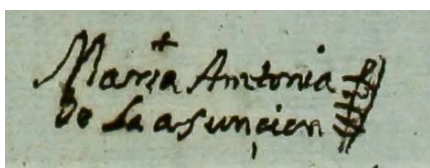 Maria Antonia
De la asuncion